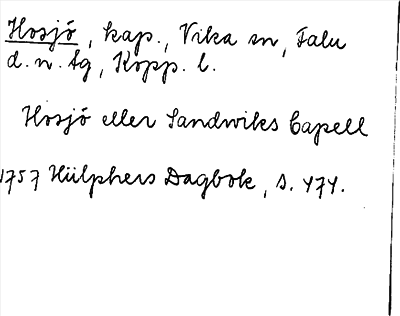 Hosjö, kap., Vika sn, Falu
d. n. tg, Kopp. l.
Hosjö eller Sandwiks Capell
1757 Hülphers Dagbok, s. 474.